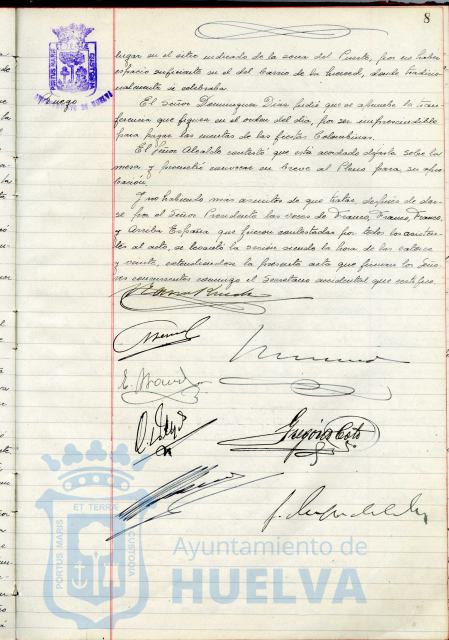 8
PORTUS MARIS
CUSTODIA
Ruego
lugar en el sitio indicado de la zona del Puerto, por no haber
espacio suficiente en el del barrio de la Merced, donde tradicio-
nalmente se celebraba.
El Señor Dominguez Diaz pidió que se apruebe la trans-
ferencia que figura en el orden del dia, por ser imprescindible
para pagar las cuentas de las fiestas Colombinas.
El Señor Alcalde contestó que está acordado dejarla sobre la
mesa y prometió convocar en breve al Pleno para su apro-
bación.
Y no habiendo mas asuntos de que tratar, después de dar-
se por el Señor Presidente las voces de Franco, Franco, Franco,
y Arriba España que fueron contestadas por todos los asisten-
tes al acto, se levantó la sesión siendo la hora de las catorce
y veinte, extendiendose la presente acta que firman los Seño-
res concurrentes conmigo el Secretario accidental que certifico.
Gregorio Coto
ET TERRÆ
PORTUS MARIS
CUSTODIA
Ayuntamiento de
HUELVA